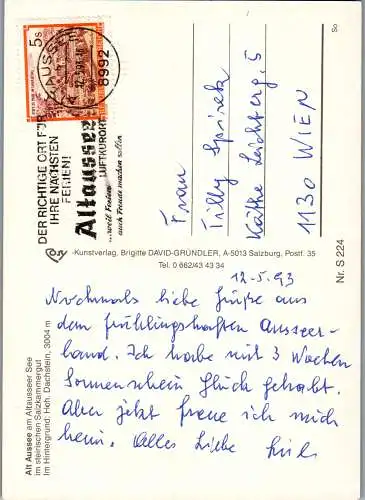 5s
8992
DER RICHTIGE ORT FÜR
IHRE NÄCHSTEN
FERIEN!
Altaussee
LUFTKURORT
...weil Ferien
auch Freude machen sollen
Frau
Tilly
Käthe Leichterg. 5
1130 WIEN
-Kunstverlag, Brigitte DAVID-GRÜNDLER, A-5013 Salzburg, Postf. 35
Tel. 0 662/43 43 34
So
Nr. S 224
Alt Aussee am Altausseer See
Im steirischen Salzkammergut
Im Hintergrund: Hoh. Dachstein, 3004 m
12.5.93
Nochmals liebe Grüße aus
dem frühlingshaften Ausseer-
land. Ich habe mit 3 Wochen
Sonnenschein Glück gehabt.
Aber jetzt freue ich mich
heim. Alles Liebe